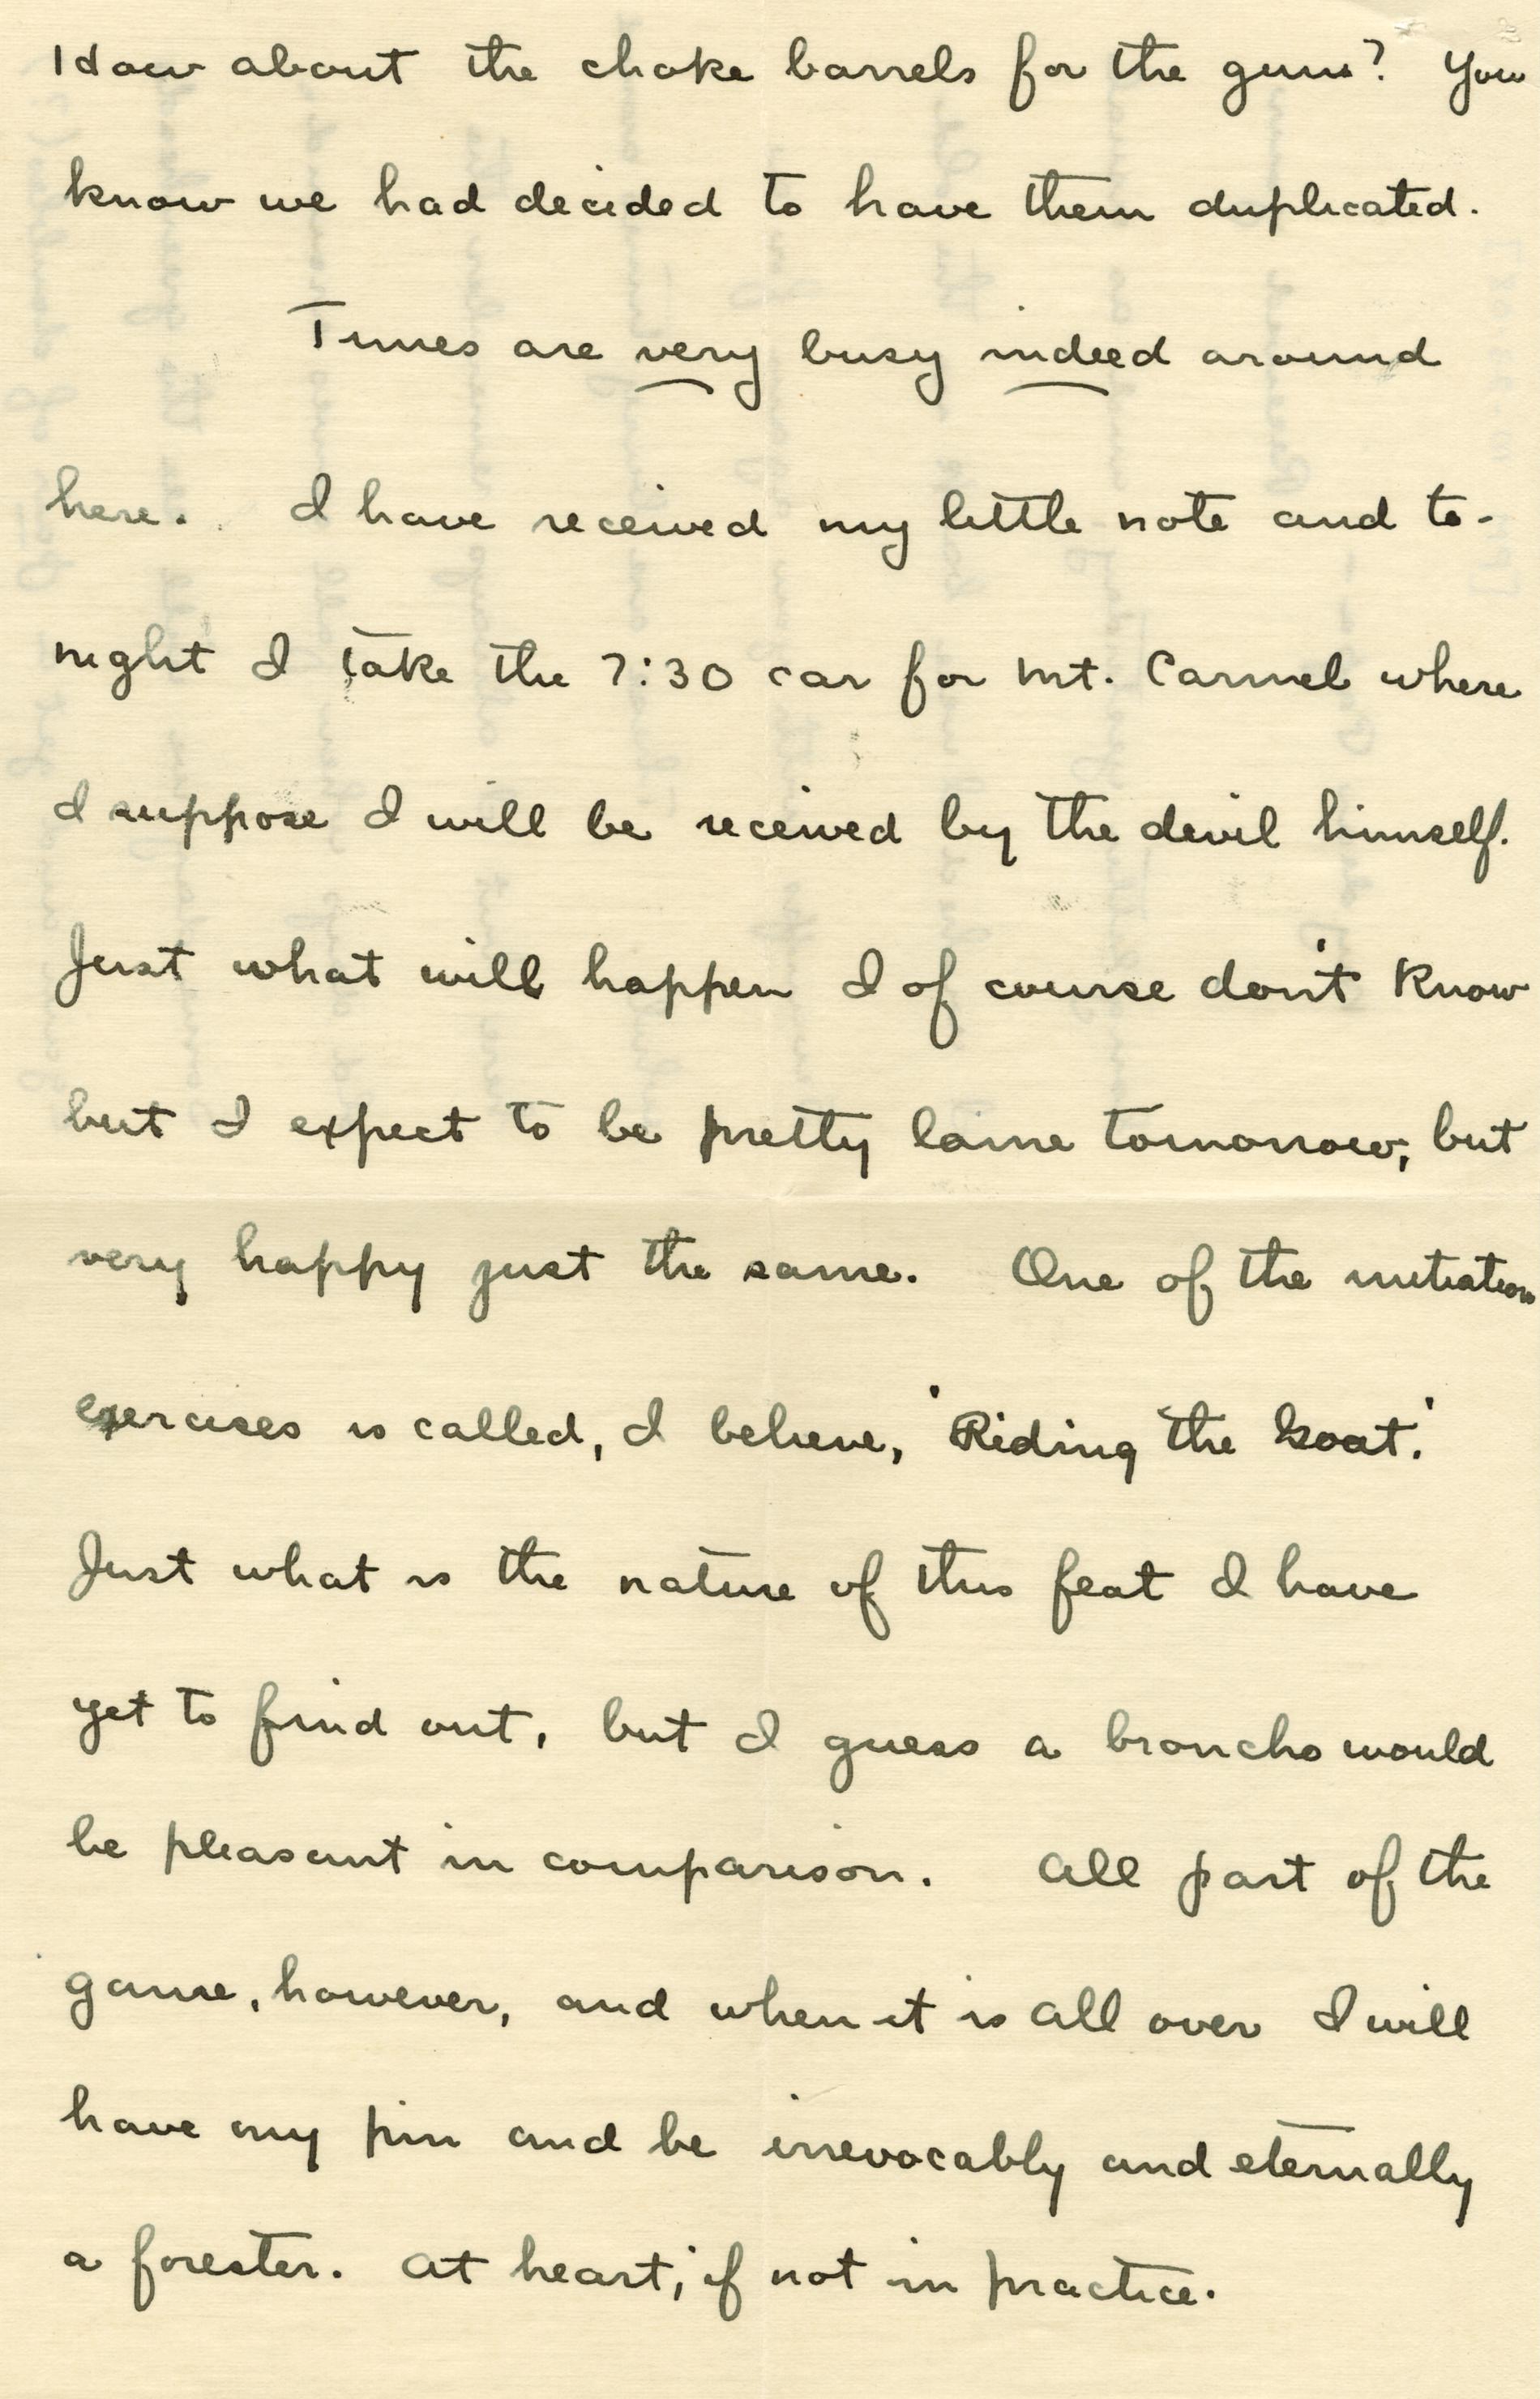 How about the choke barrels for the guns? You
know we had decided to have them duplicated.
Times are very busy indeed around
here. I have received my little note and to-
night I take the 7:30 car for Mt. Carmel where
I suppose I will be received by the devil himself.
Just what will happen I of course don't know
but I expect to be pretty lame tomorrow, but
very happy just the same. One of the initiation
exercises is called, I believe, 'Riding the Goat.'
Just what is the nature of this feat I have
yet to find out, but I guess a broncho would
be pleasant in comparison. All part of the
game, however, and when it is all over I will
have my pin and be irrevocably and eternally
a forester. At heart, if not in practice.